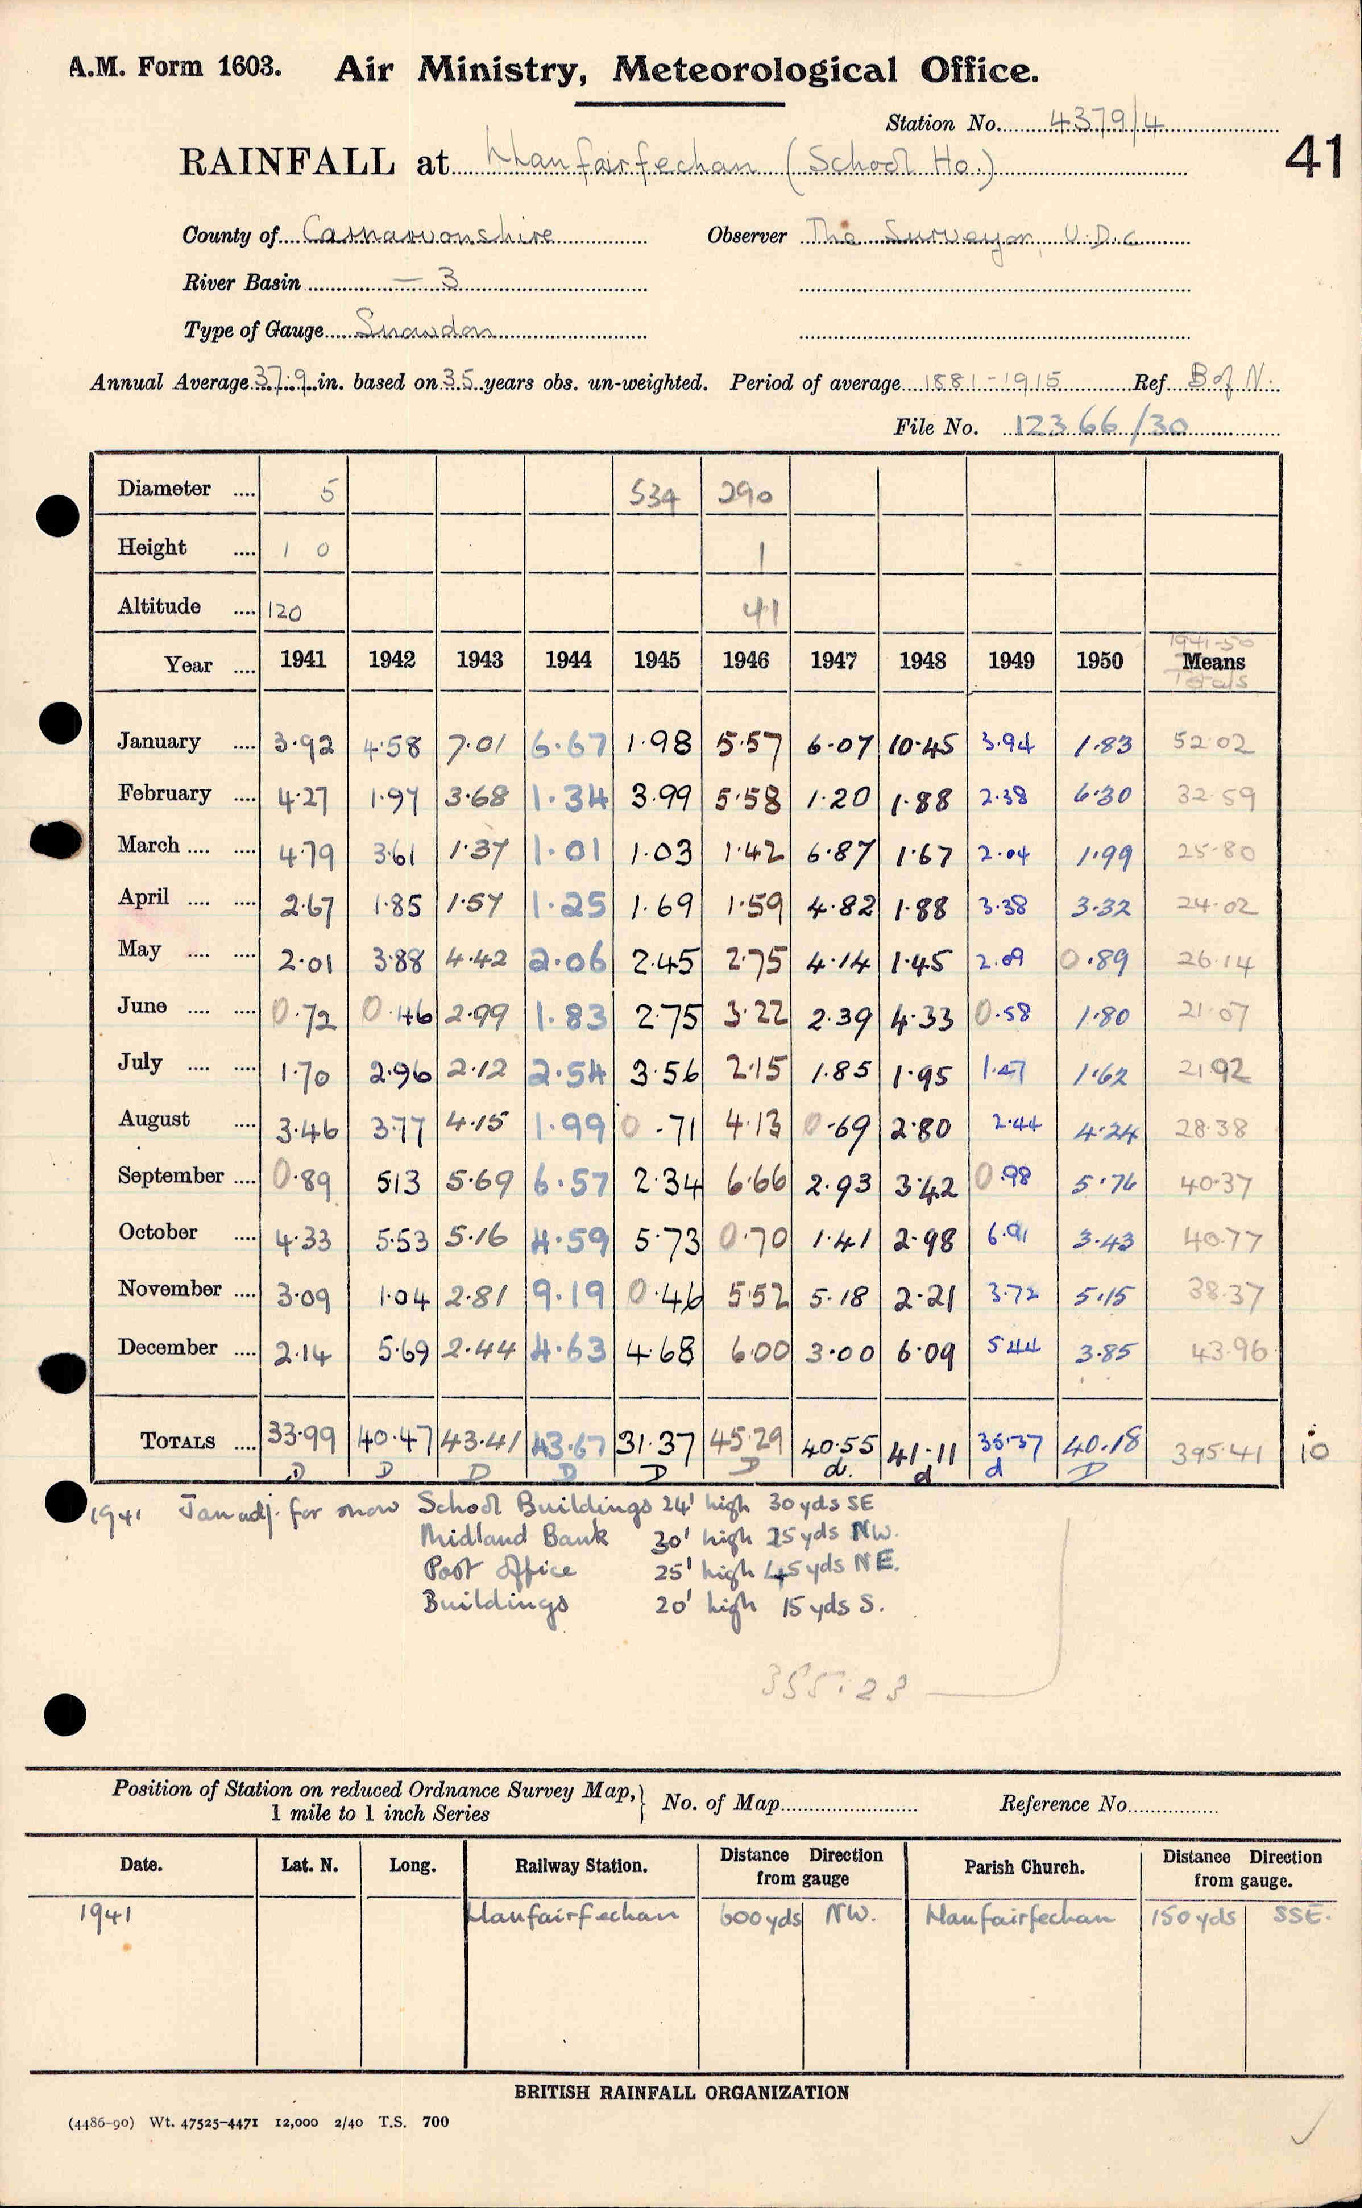 A.M. Form 1603. Air Ministry, Meteorological Office.
Station No. 4379/4
41
RAINFALL at Llanfairfechan (School Ho.)
County of Carnarvonshire Observer The Surveyor, U.D.C.
River Basin — 3
Type of Gauge Snowdon
Annual Average 37.9 in. based on 35 years obs. un-weighted. Period of average 1881-1915 Ref B of N.
File No. 12366/30
Diameter .... 5 534 290
Height .... 1 0 1
Altitude .... 120 41
1941-50
Year .... 1941 1942 1943 1944 1945 1946 1947 1948 1949 1950 Means
Totals
January .... 3.92 4.58 7.01 6.67 1.98 5.57 6.07 10.45 3.94 1.83 52.02
February .... 4.27 1.97 3.68 1.34 3.99 5.58 1.20 1.88 2.38 6.30 32.59
March .... .... 4.79 3.61 1.37 1.01 1.03 1.42 6.87 1.67 2.04 1.99 25.80
April .... .... 2.67 1.85 1.57 1.25 1.69 1.59 4.82 1.88 3.38 3.32 24.02
May .... .... 2.01 3.88 4.42 2.06 2.45 2.75 4.14 1.45 2.09 0.89 26.14
June .... .... 0.72 0.46 2.99 1.83 2.75 3.22 2.39 4.33 0.58 1.80 21.07
July .... .... 1.70 2.96 2.12 2.54 3.56 2.15 1.85 1.95 1.47 1.62 21.92
August .... 3.46 3.77 4.15 1.99 0.71 4.13 0.69 2.80 2.44 4.24 28.38
September .... 0.89 5.13 5.69 6.57 2.34 6.66 2.93 3.42 0.98 5.76 40.37
October .... 4.33 5.53 5.16 4.59 5.73 0.70 1.41 2.98 6.91 3.43 40.77
November .... 3.09 1.04 2.81 9.19 0.46 5.52 5.18 2.21 3.72 5.15 38.37
December .... 2.14 5.69 2.44 4.63 4.68 6.00 3.00 6.09 5.44 3.85 43.96
TOTALS .... 33.99 40.47 43.41 43.67 31.37 45.29 40.55 41.11 35.37 40.18 395.41 10
D D D D D D d. d d D
1941 Jan adj. for snow School Buildings 24' high 30 yds SE
Midland Bank 30' high 25 yds NW.
Post Office 25' high 45 yds NE.
Buildings 20' high 15 yds S.
355.23
Position of Station on reduced Ordnance Survey Map, 1 mile to 1 inch Series No. of Map Reference No.
Date. Lat. N. Long. Railway Station. Distance Direction from gauge Parish Church. Distance Direction from gauge.
1941 Llanfairfechan 600 yds NW. Llanfairfechan 150 yds SSE.
BRITISH RAINFALL ORGANIZATION
(4486-90) Wt. 47525-4471 12,000 2/40 T.S. 700